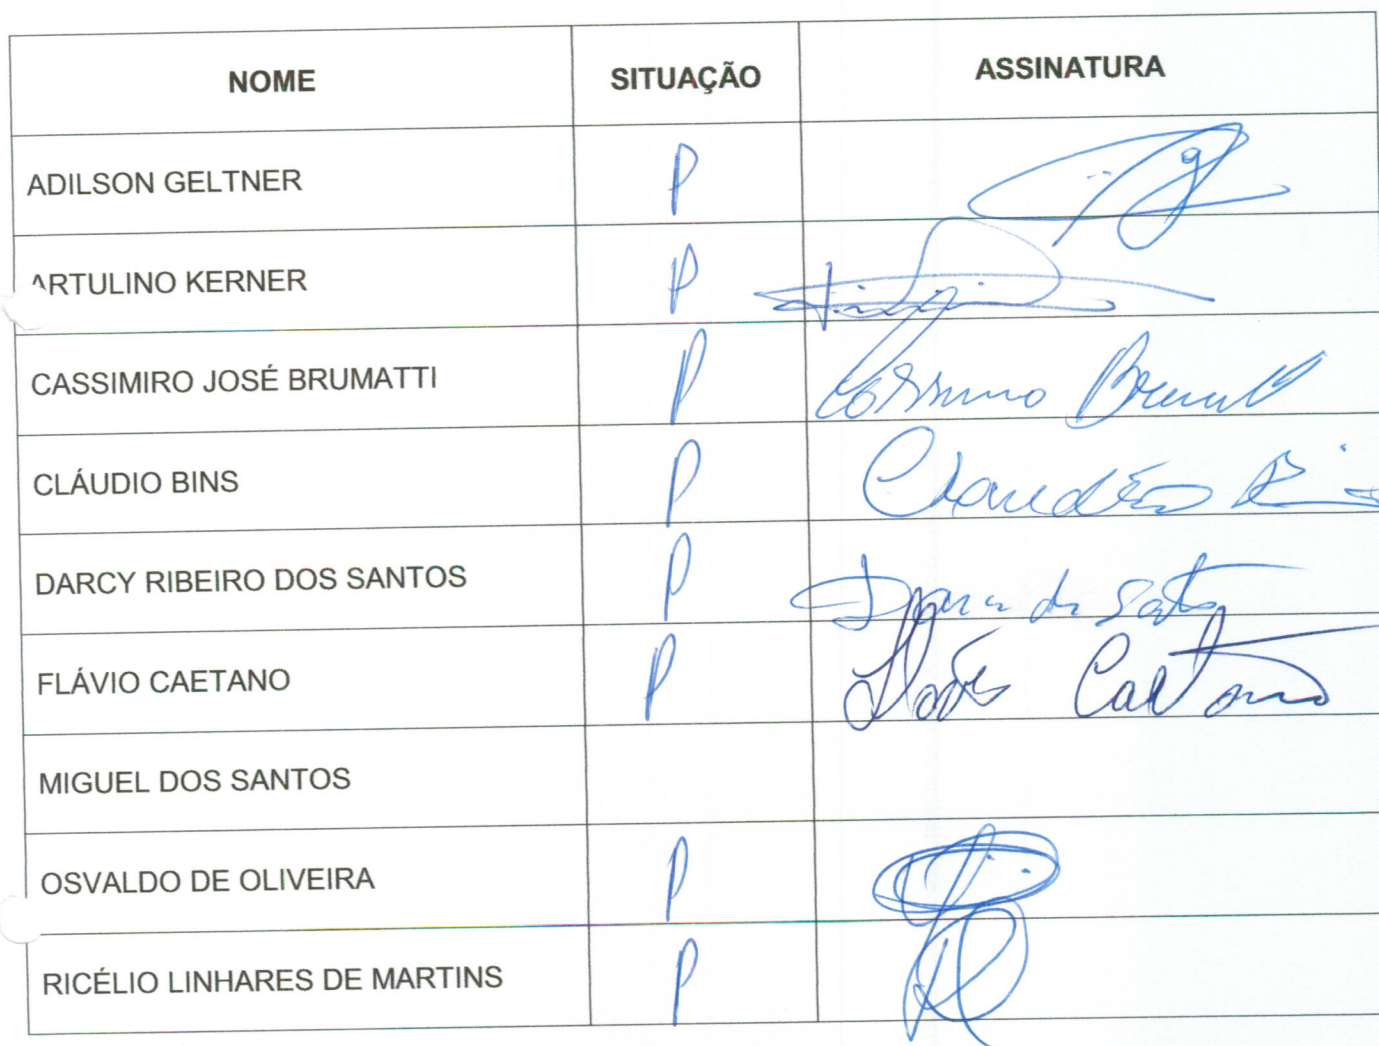 NOME SITUAÇÃO ASSINATURA
ADILSON GELTNER P
ARTULINO KERNER P
CASSIMIRO JOSÉ BRUMATTI P
CLÁUDIO BINS P Claudio Bins
DARCY RIBEIRO DOS SANTOS P
FLÁVIO CAETANO P Flávio Caetano
MIGUEL DOS SANTOS
OSVALDO DE OLIVEIRA P
RICÉLIO LINHARES DE MARTINS P